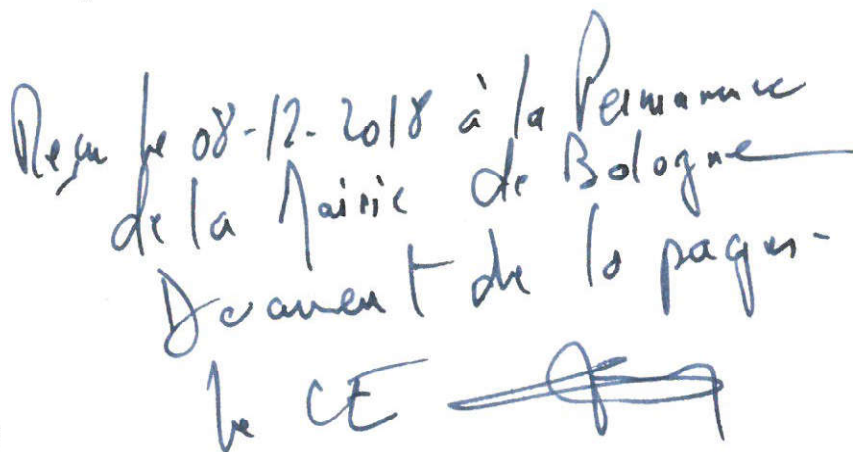 Reçu le 08-12-2018 à la Permanence
de la Mairie de Bologne
Document de 10 pages-
le CE